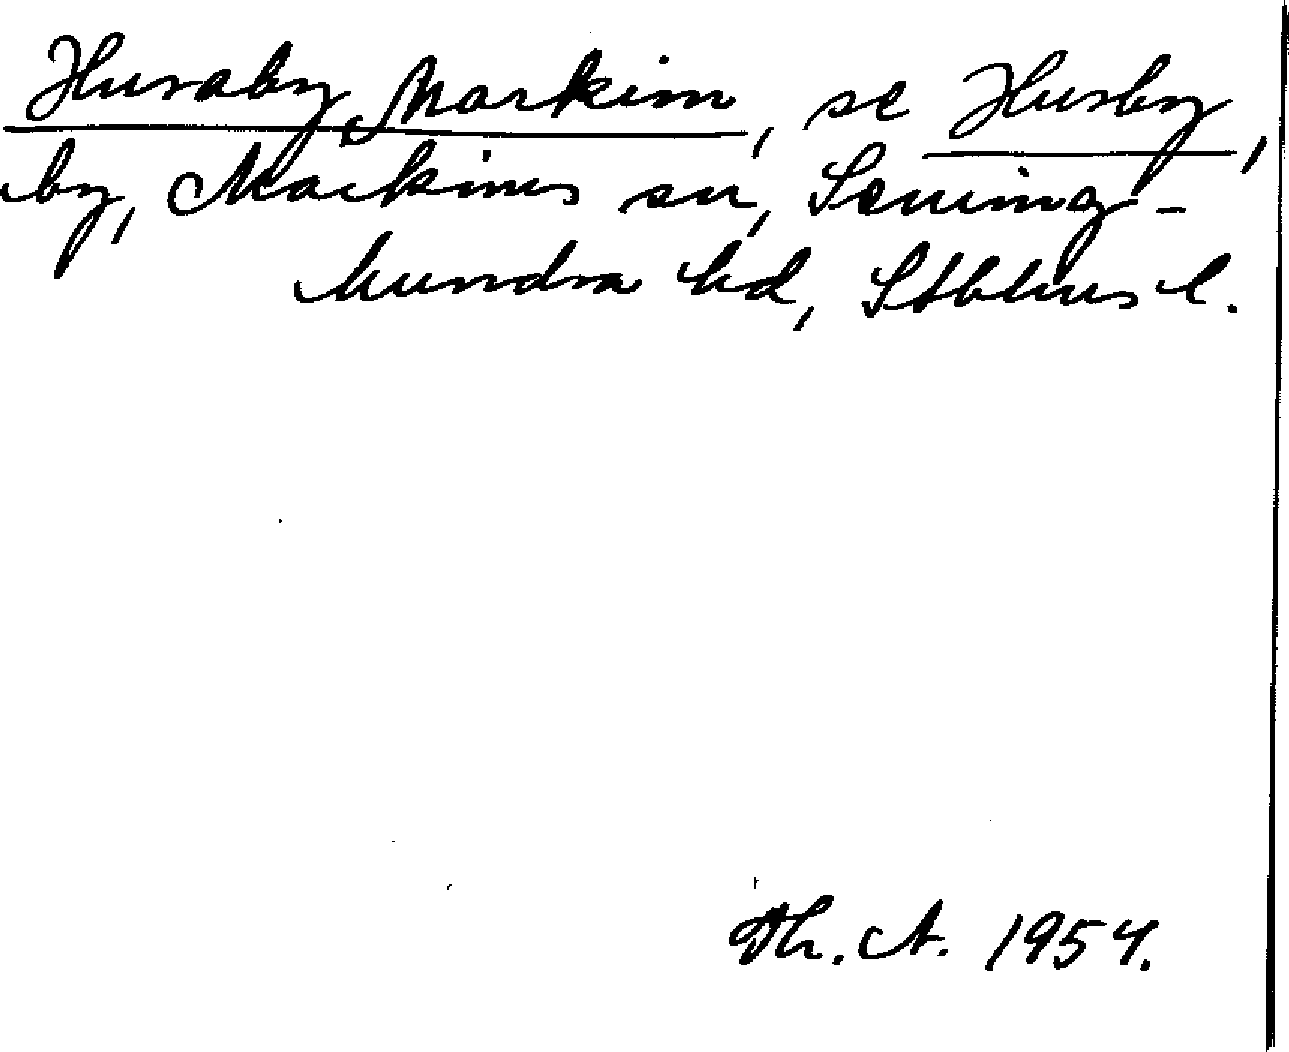 Husaby, Markim, se Husby,
by, Markims sn, Seming-
hundra hd, Sthlms l.
Th. A. 1954.